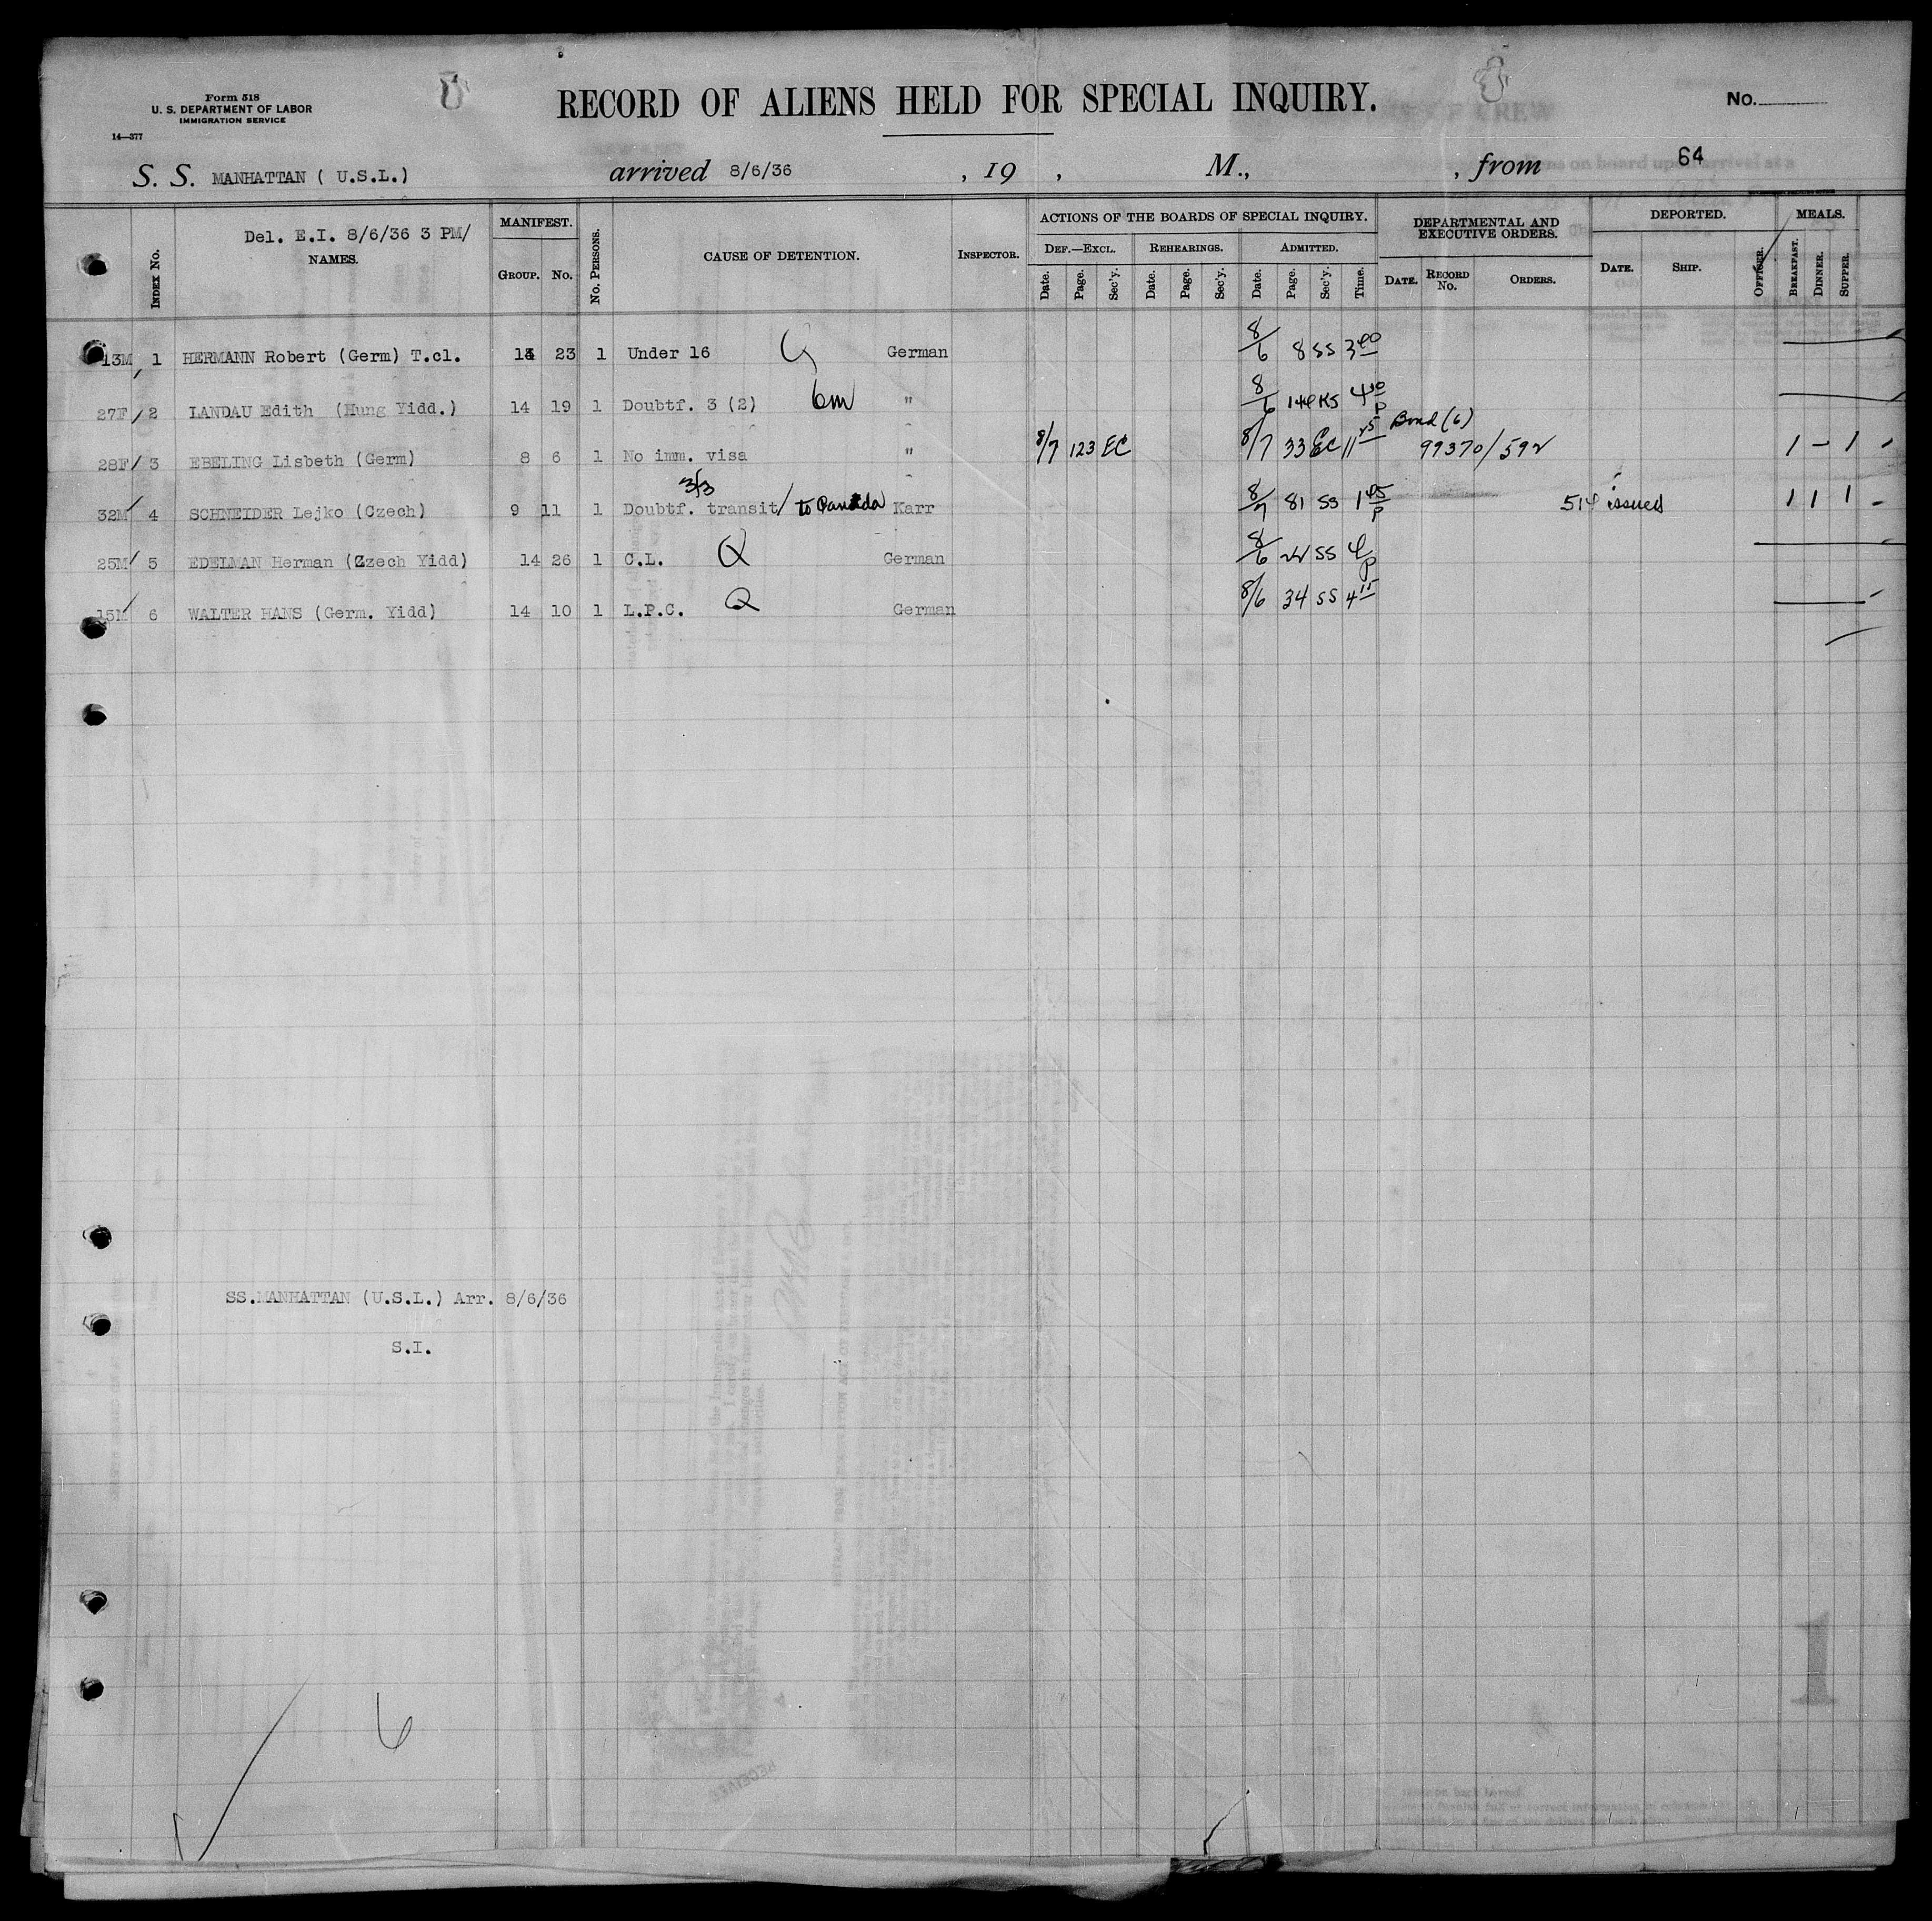 Form 518
U. S. DEPARTMENT OF LABOR
IMMIGRATION SERVICE
14—377
RECORD OF ALIENS HELD FOR SPECIAL INQUIRY.
No.
64
S. S. MANHATTAN ( U.S.L.) arrived 8/6/36 , 19 , M., , from
Del. E.I. 8/6/36 3 PM/
INDEX No. NAMES. MANIFEST. GROUP. No. No. PERSONS. CAUSE OF DETENTION. INSPECTOR. ACTIONS OF THE BOARDS OF SPECIAL INQUIRY. DEF.—EXCL. Date. Page. Sec'y. REHEARINGS. Date. Page. Sec'y. ADMITTED. Date. Page. Sec'y. Time. DEPARTMENTAL AND EXECUTIVE ORDERS. DATE. RECORD No. ORDERS. DEPORTED. DATE. SHIP. OFFICER. MEALS. BREAKFAST. DINNER. SUPPER.
13M 1 HERMANN Robert (Germ) T.cl. 23 1 Under 16 German 8/6 8 SS 3 00
27F/ 2 LANDAU Edith (Hung Yidd.) 14 19 1 Doubtf. 3 (2) 6m " 8/6 KS P
Bond (6)
28F/ 3 EBELING Lisbeth (Germ) 8 6 1 No imm. visa " 8/7 123 EC 8/7 33 EC 11 99370/592 1 – 1
3/3
32M/ 4 SCHNEIDER Lejko (Czech) 9 11 1 Doubtf. transit/ to Canada Karr 8/7 81 SS 1 45 P 514 issued 1 1 1
25M/ 5 EDELMAN Herman (Czech Yidd) 14 26 1 C.L. German 8/6 22 SS 4 P
15M/ 6 WALTER HANS (Germ. Yidd) 14 10 1 L.P.C. German 8/6 34 SS 4 15
SS.MANHATTAN (U.S.L.) Arr. 8/6/36
S.I.
6
1
RECEIVED